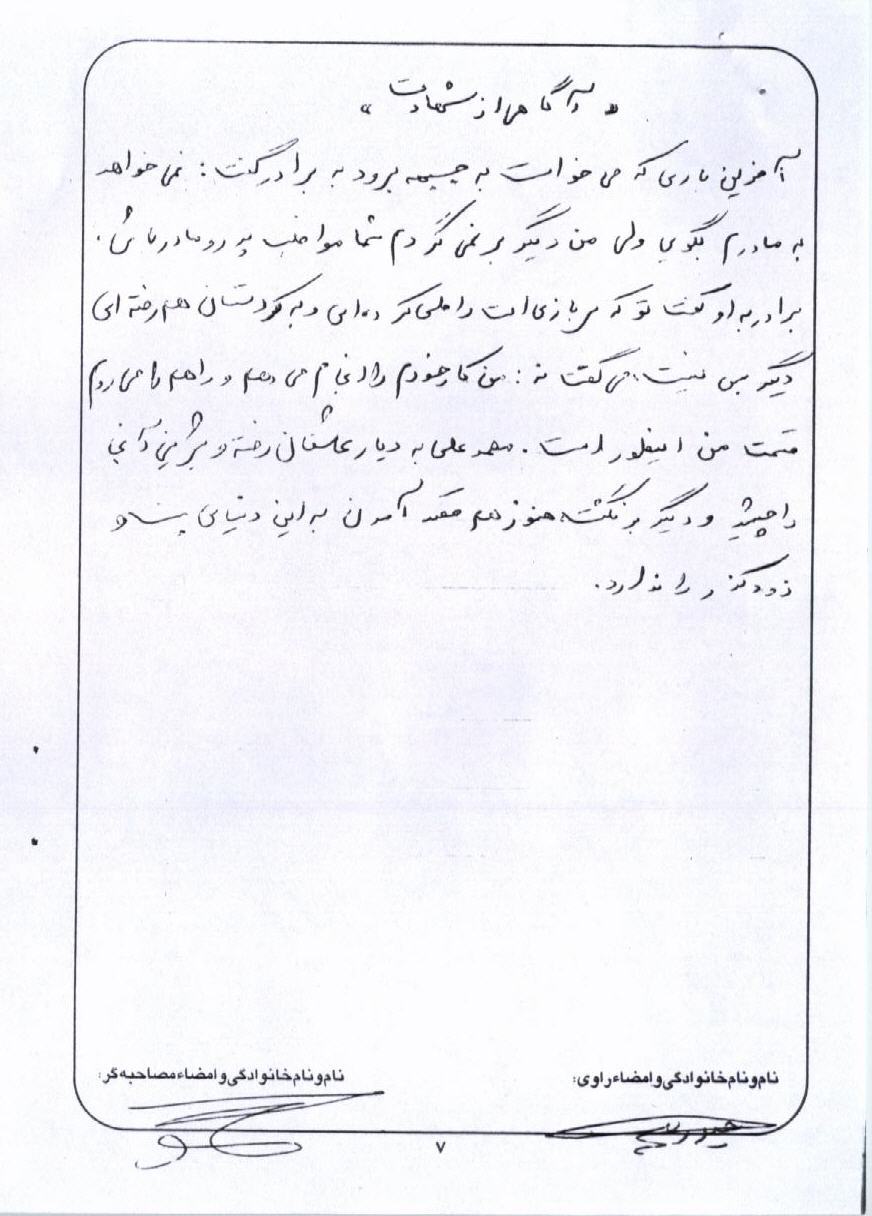 « آگاهی از شهادت »
آخرین باری که می خواست به جبهه برود به برادر گفت: نمی خواهد
به مادرم بگویی ولی من دیگر بر نمی گردم شما مواظب پدر و مادر باش.
برادر به او گفت تو که سربازی ات را طی کرده ای و به کردستان هم رفته ای
دیگر بس نیست، می گفت نه: من کار خودم را انجام می دهم و راهم را می روم
قسمت من اینطور است. محمد علی به دیار عاشقان رفت و شیرینی آنجا
را چشید و دیگر برنگشت هنوز هم قصد آمدن به این دنیای پست و
زودگذر را ندارد.
نام و نام خانوادگی و امضاء راوی:
نام و نام خانوادگی و امضاء مصاحبه گر:
۷